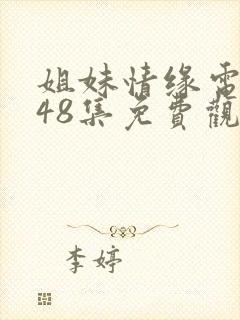 姐妹情缘電
48集免費觀
李婷